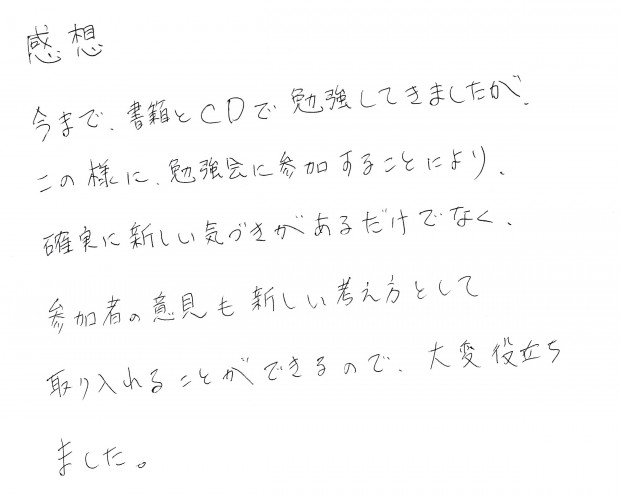 感想
今まで、書籍とCDで勉強してきましたが、
この様に、勉強会に参加することにより、
確実に新しい気づきがあるだけでなく、
参加者の意見も新しい考え方として
取り入れることができるので、大変役立ち
ました。